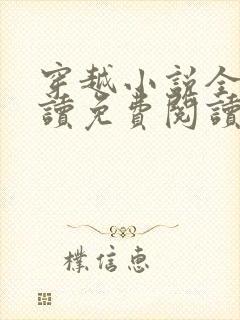 穿越小說全
讀免費閱讀
樸信惠